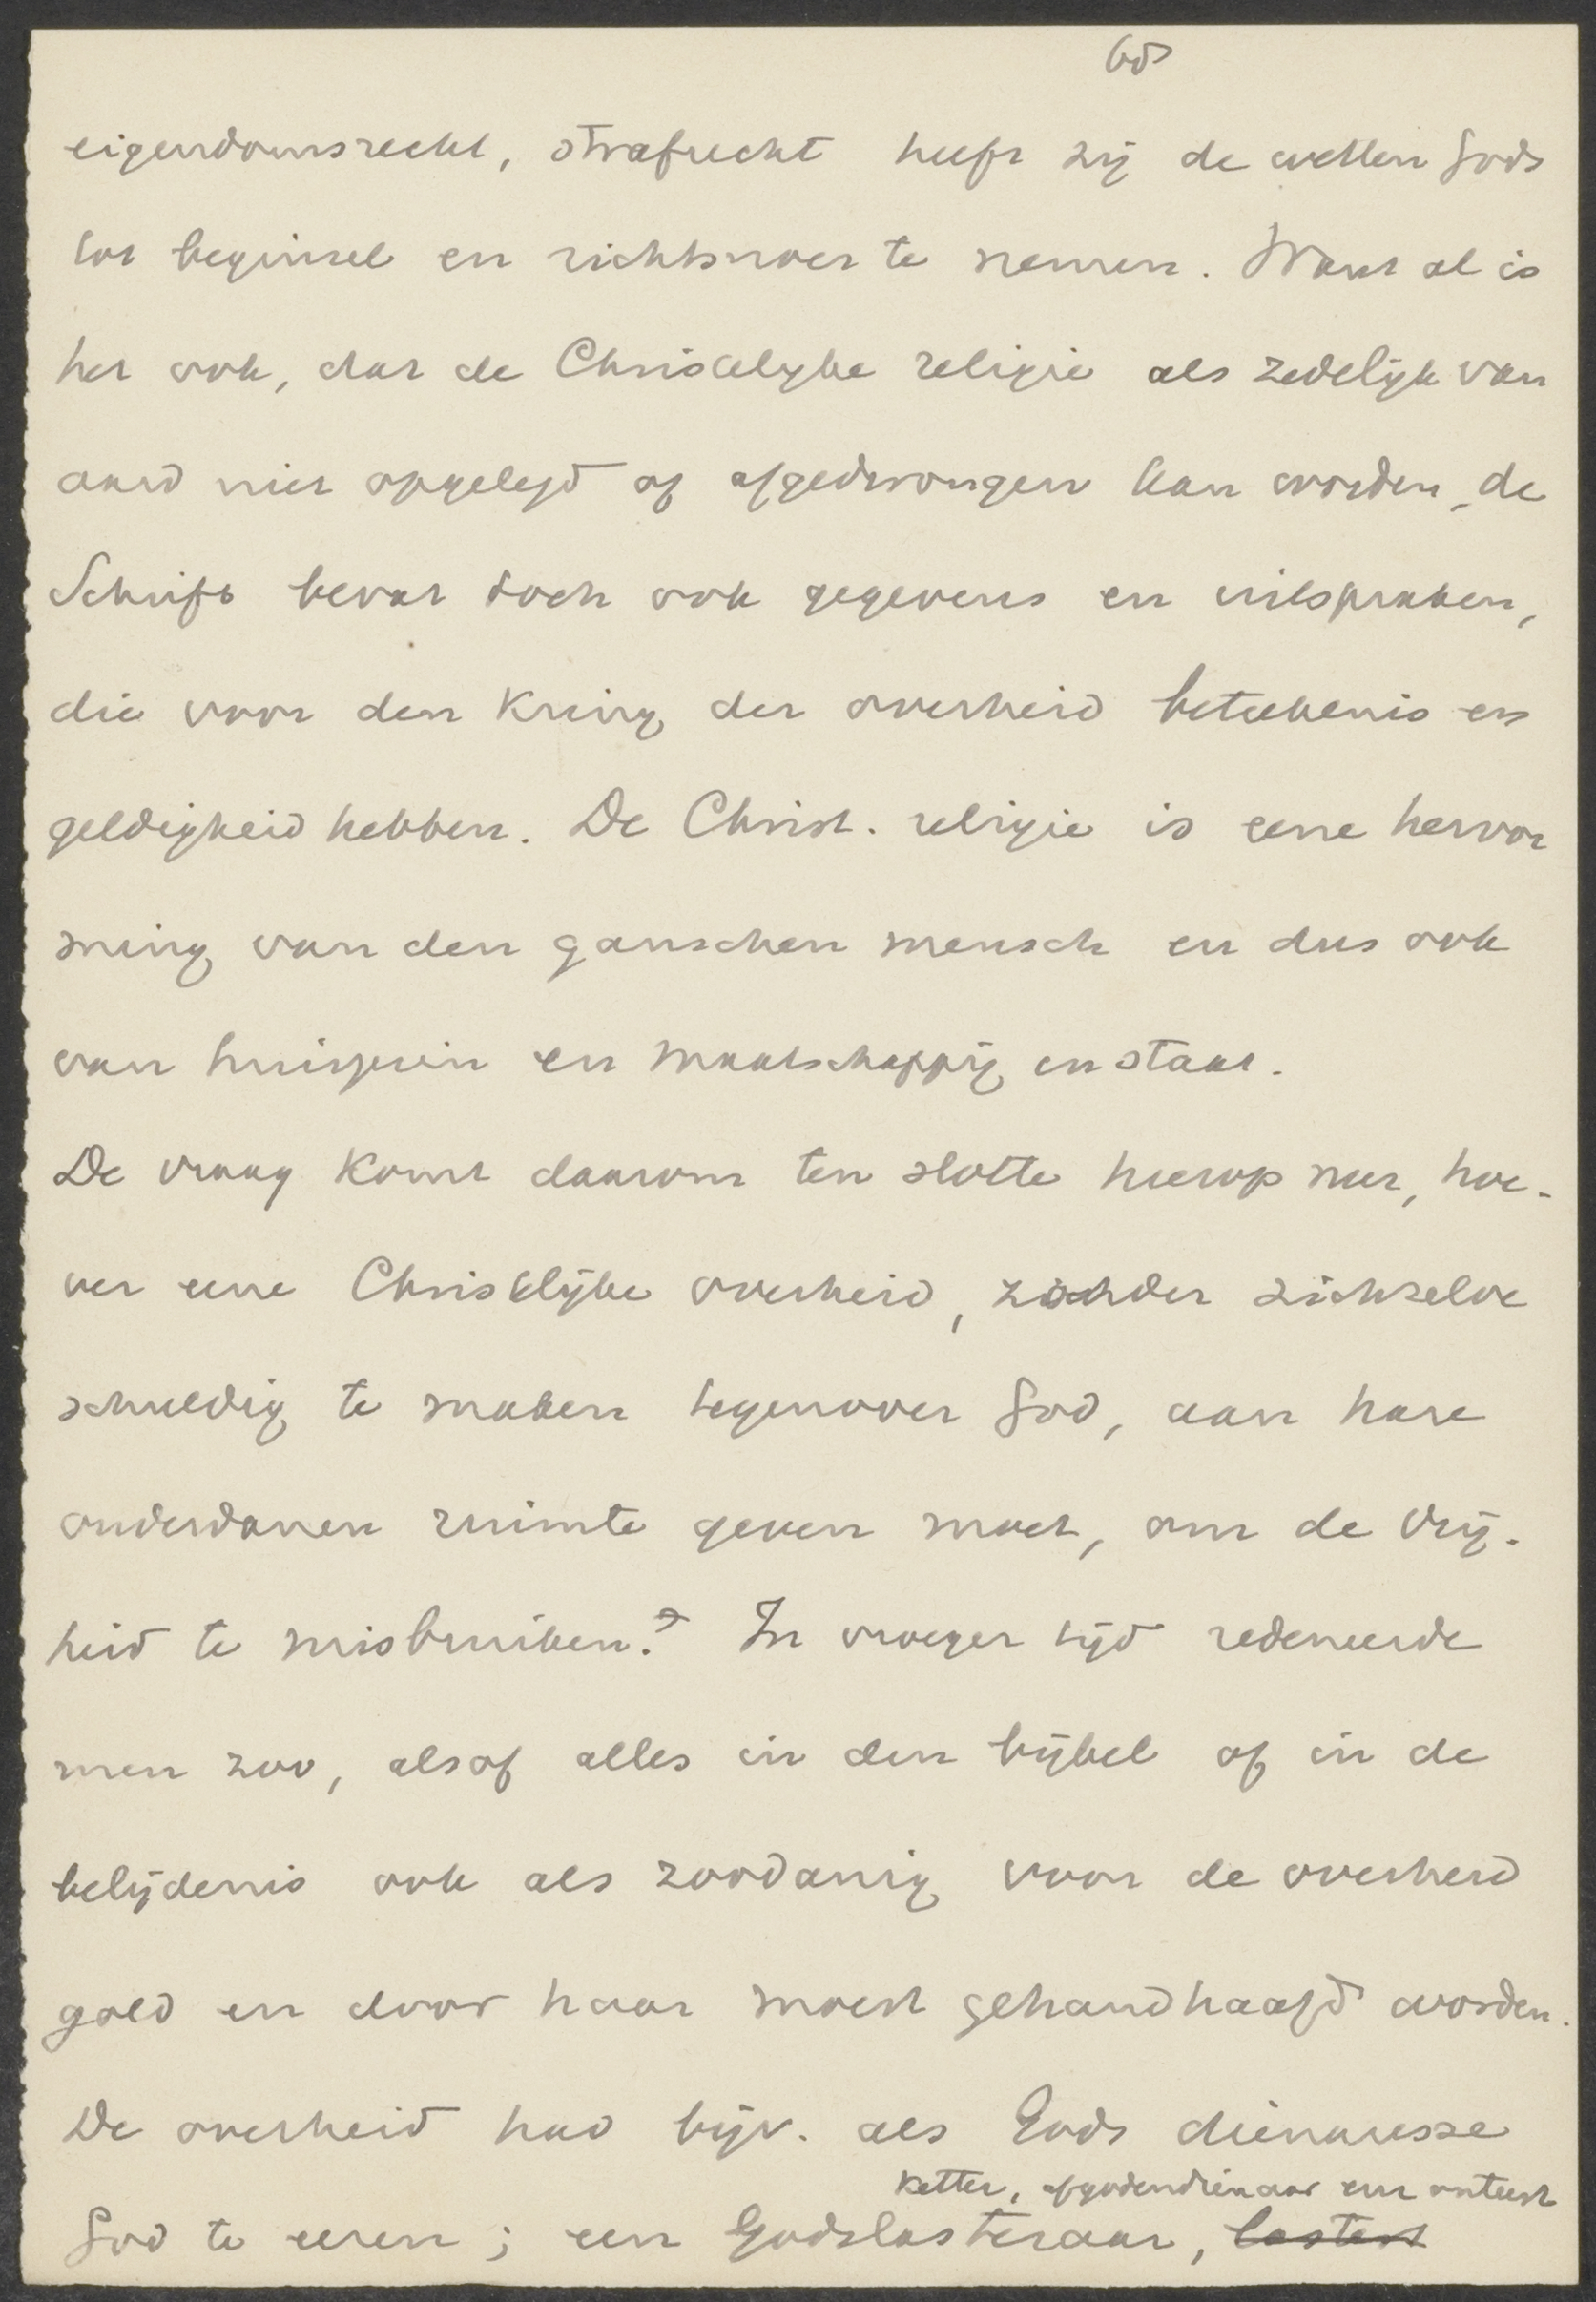 65
eigendomsrecht, strafrecht heeft zij de wetten Gods
tot beginsel en richtsnoer te nemen. Want al is
het ook, dat de Christelijke religie als zedelijk van
aard niet opgelegd of afgedwongen kan worden, de
Schrift bevat toch ook gegevens en uitspraken,
die voor den Kring der overheid beteekenis en
geldigheid hebben. De Christ. religie is eene hervor
ming van den ganschen mensch en dus ook
van huisgezin en maatschappij en staat.
De vraag komt daarom ten slotte hierop neer, hoe-
ver eene Christelijke overheid, zonder zichzelve
schuldig te maken tegenover God, aan hare
onderdanen ruimte geven moet, om de vrij-
heid te misbruiken? In vroeger tijd redeneerde
men zoo, alsof alles in den bijbel of in de
belijdenis ook als zoodanig voor de overheid
gold en door haar moest gehandhaafd worden.
De overheid had bijv. als Gods dienaresse
ketter, afgodendienaar enz onteert
God te eeren; een Godslasteraar, lastert